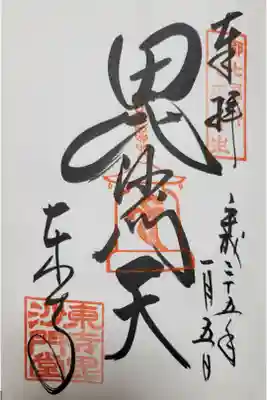 奉拝
平成二十五年
一月五日
毘沙門天
東寺
東寺毘
沙門堂